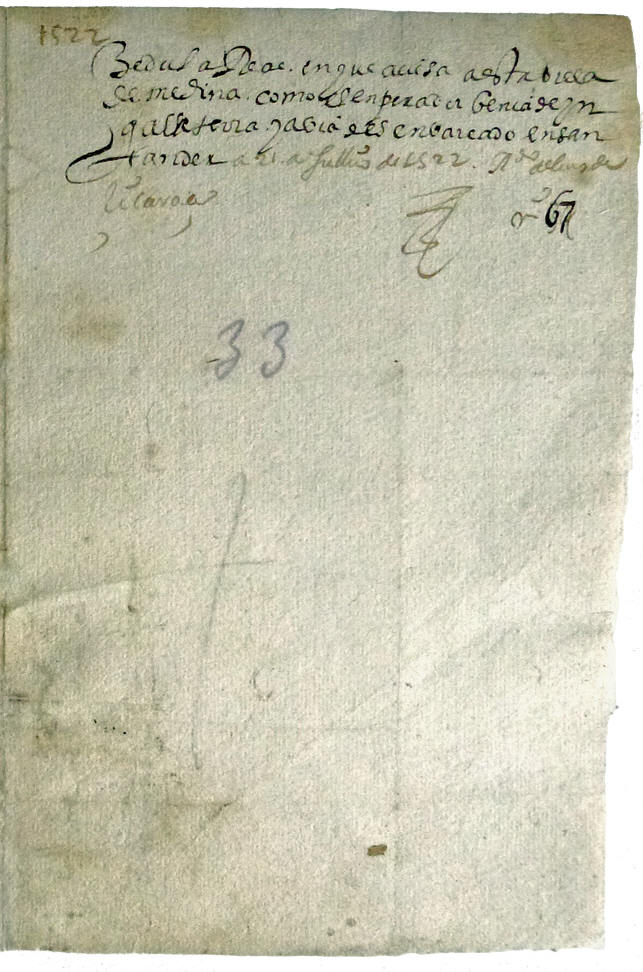 1522
Zedula Real en que avisa a esta billa
de medina como el enperador benia de yn
galaterra y abia desenbarcado en san
tander a 21 de Jullio de 1522.
nº 67
33